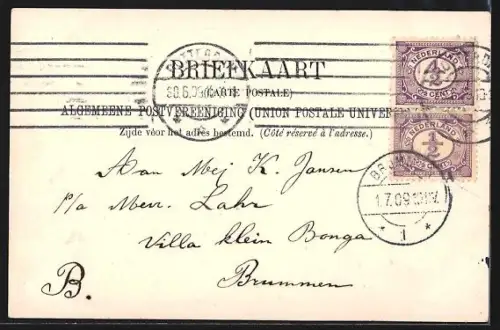 BRIEFKAART
(CARTE POSTALE)
ALGEMEENE POSTVEREENIGING (UNION POSTALE UNIVER
Zijde vóor het adres bestemd. (Côté réservé à l'adresse.)
NEDERLAND
½
½ CENT
NEDERLAND
½
½ CENT
30.6.09
BRUMM
1.7.09
1
Aan Mej K. Jansen
p/a Mevr. Lahr
Villa klein Bonga
B. Brummen